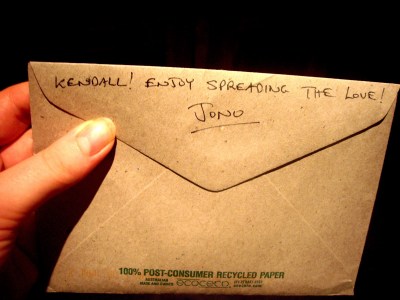 KENDALL! ENJOY SPREADING THE LOVE!
JONO
100% POST-CONSUMER RECYCLED PAPER
AUSTRALIAN
MADE AND OWNED
ecococo